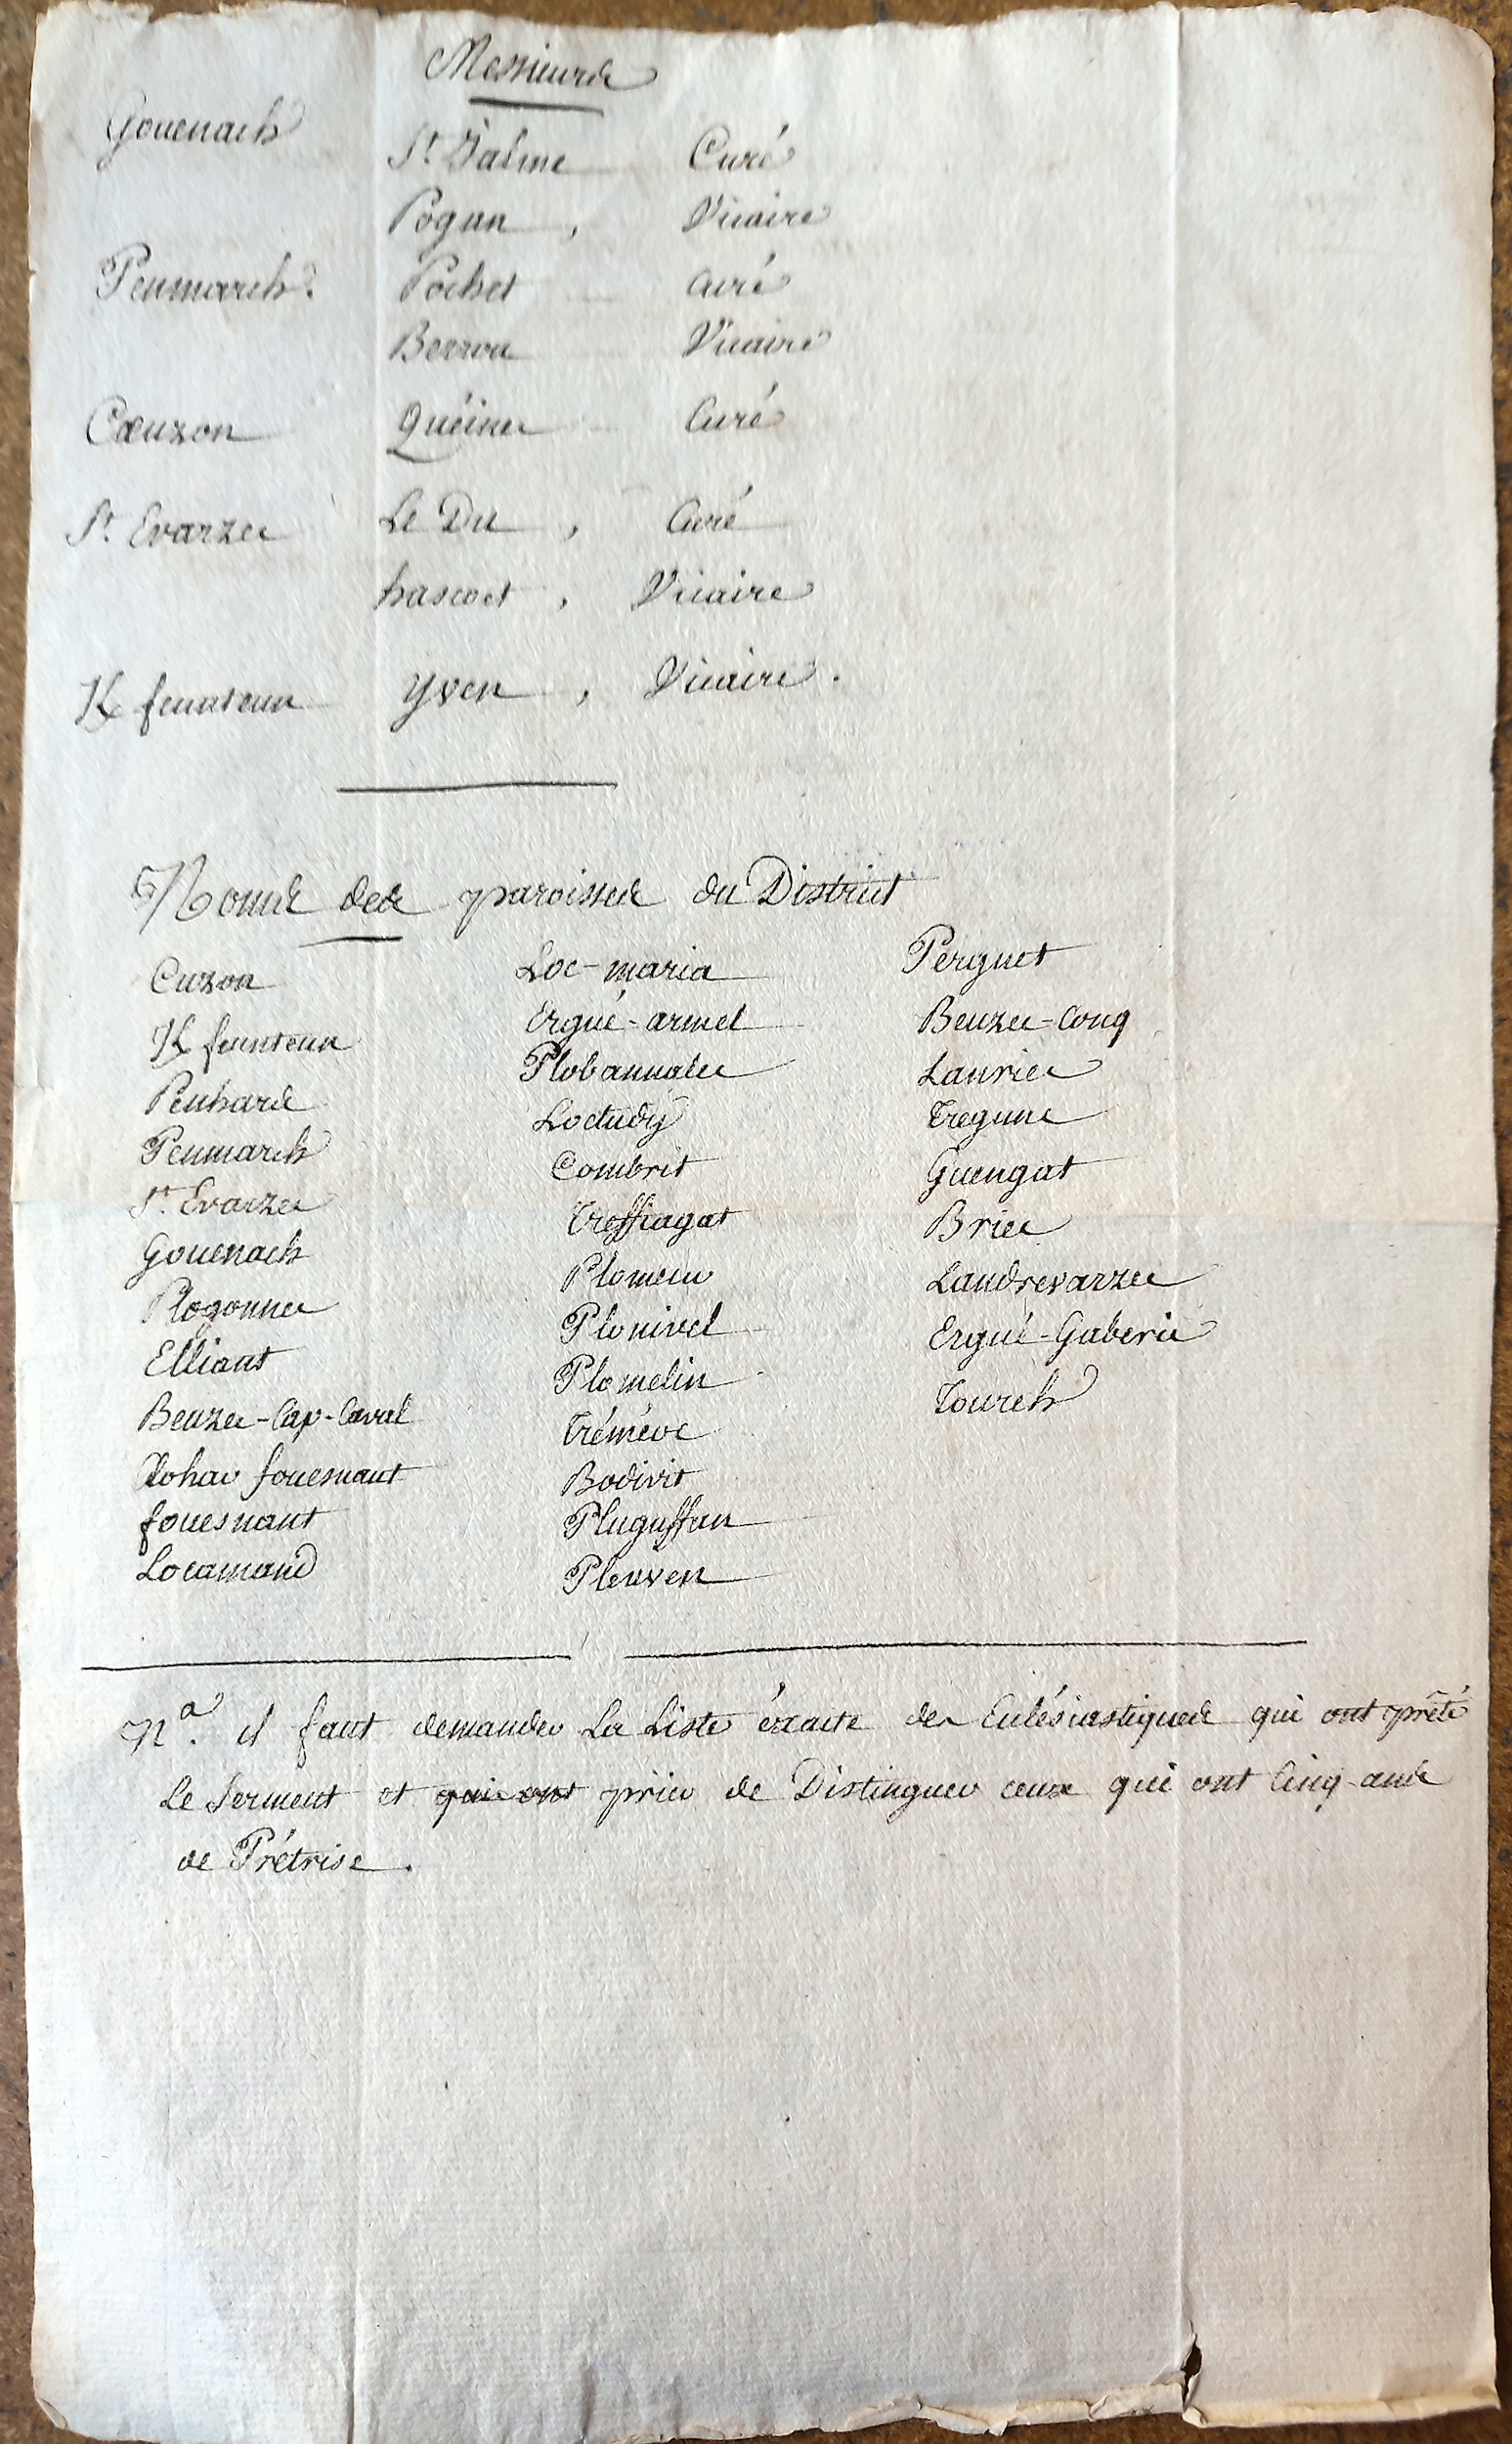 Messieurs
Gouenach
St Jalme Curé
Pogan, Vicaire
Penmarch. Pochet Curé
Berrou Vicaire
Cœuzon Quéinec Curé
St Evarzec Le Du, Curé
hascoet, Vicaire
K feunteun Yven, Vicaire.
Noms des paroisses du District
Cuzon
K feunteun
Penhars
Penmarch
St Evarzec
Gouenach
Plogonnec
Elliant
Beuzec-Cap-Caval
Clohar fouesnant
fouesnant
Locamand
Loc-maria
Ergué-armel
Plobannalec
Loctudÿ
Combrit
Treffiagat
Plomeur
Plonivel
Plomelin
Tréméoc
Bodivit
Pluguffan
Pleuven
Perguet
Beuzec-Conq
Lanriec
Tregunc
Guengat
Briec
Landrevarzec
Ergué-Gaberic
Tourch
Na. il faut demander La Liste éxacte des Eclésiastiques qui ont prêté
Le Serment et qui ont prier de Distinguer ceux qui ont Cinq ans
de Prétrise.